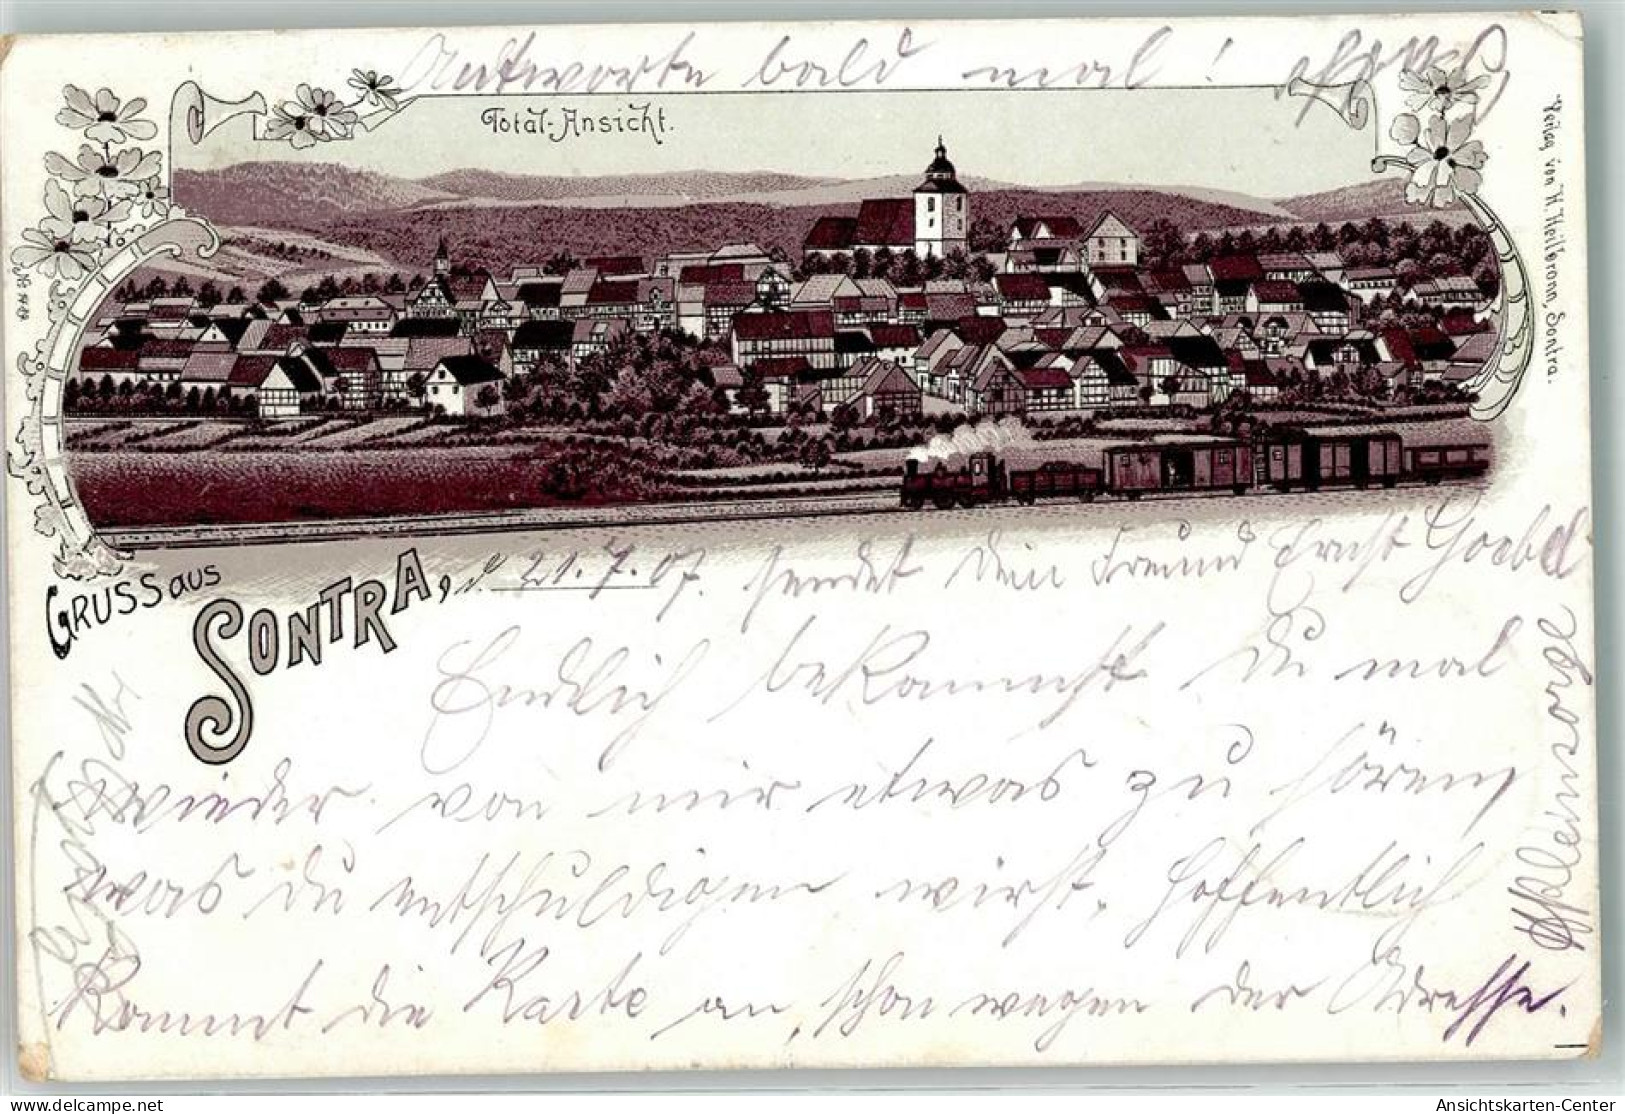 Antworte bald mal!
Total-Ansicht.
Verlag von H. Heilbronn, Sontra.
GRUSS aus
SONTRA, d. 21.7.07. sendet Dein Freund Ernst Goebel
Endlich bekommst Du mal
wieder von mir etwas zu hören,
was du entschuldigen wirst. Hoffentlich
kommt die Karte an, schon wegen der Adresse.
Ansichtskarten-Center
delcampe.net